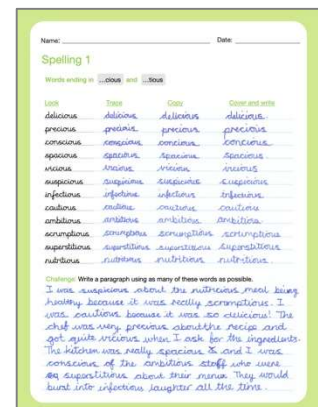 Name: Date:
Spelling 1
Words ending in ...cious and ...tious
Look Trace Copy Cover and write
delicious delicious delicious delicious
precious precious precious precious
conscious conscious concious concious
spacious spacious spacious spacious
vicious vicious vicious vicious
suspicious suspicious suspicious suspicious
infectious infectious infectious infectious
cautious cautious cautious cautious
ambitious ambitious ambitious ambitious
scrumptious scrumptious scrumptious scrumptious
superstitious superstitious superstitious superstitious
nutritious nutritious nutritious nutritious
Challenge: Write a paragraph using as many of these words as possible.
I was suspicious about the nutricious meal being
healthy because it was really scrumptious. I
was cautious because it was so delicious! The
chef was very precious about the recipe and
got quite vicious when I ask for the ingredients.
The kitchen was really spacious and I was
conscious of the ambitious staff who were
superstitious about their menus. They would
burst into infectious laughter all the time.